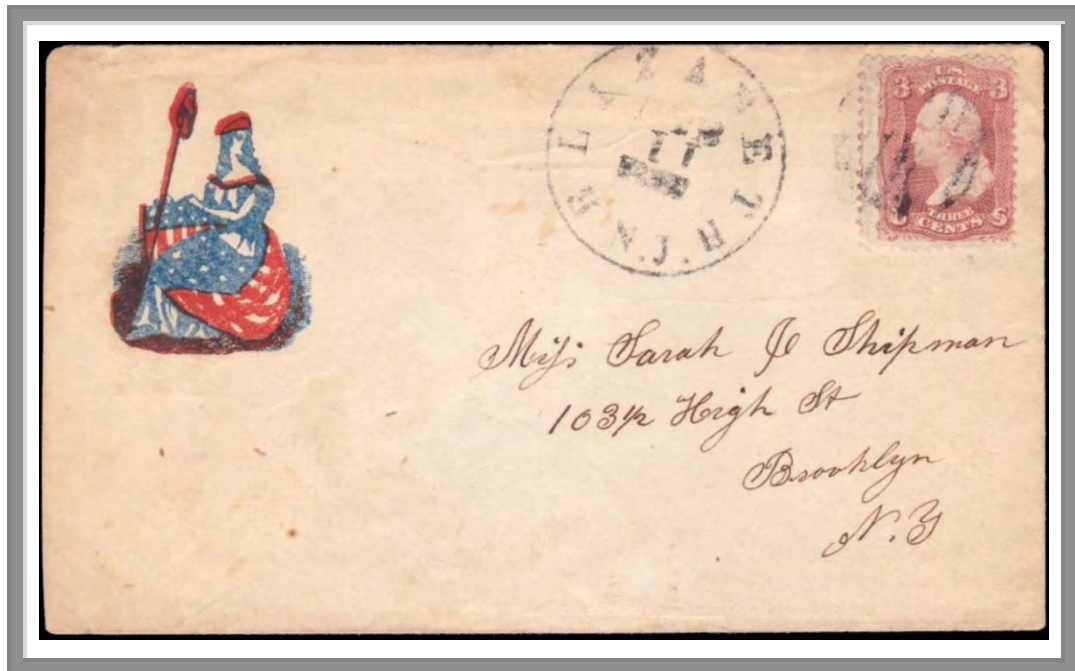 ELIZABETH N.J.
17
3 U.S. 3
POSTAGE
THREE
CENTS
Miss Sarah J Shipman
103½ High St
Brooklyn
N.Y